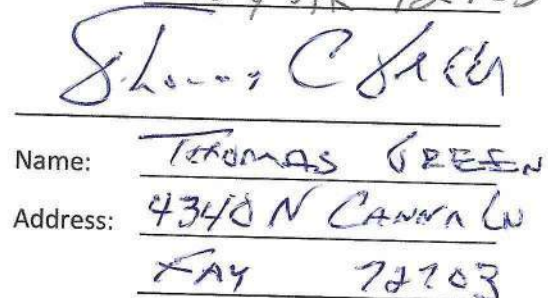 Thomas C Green
Name: THOMAS GREEN
Address: 4340 N CANNA LN
FAY 72703